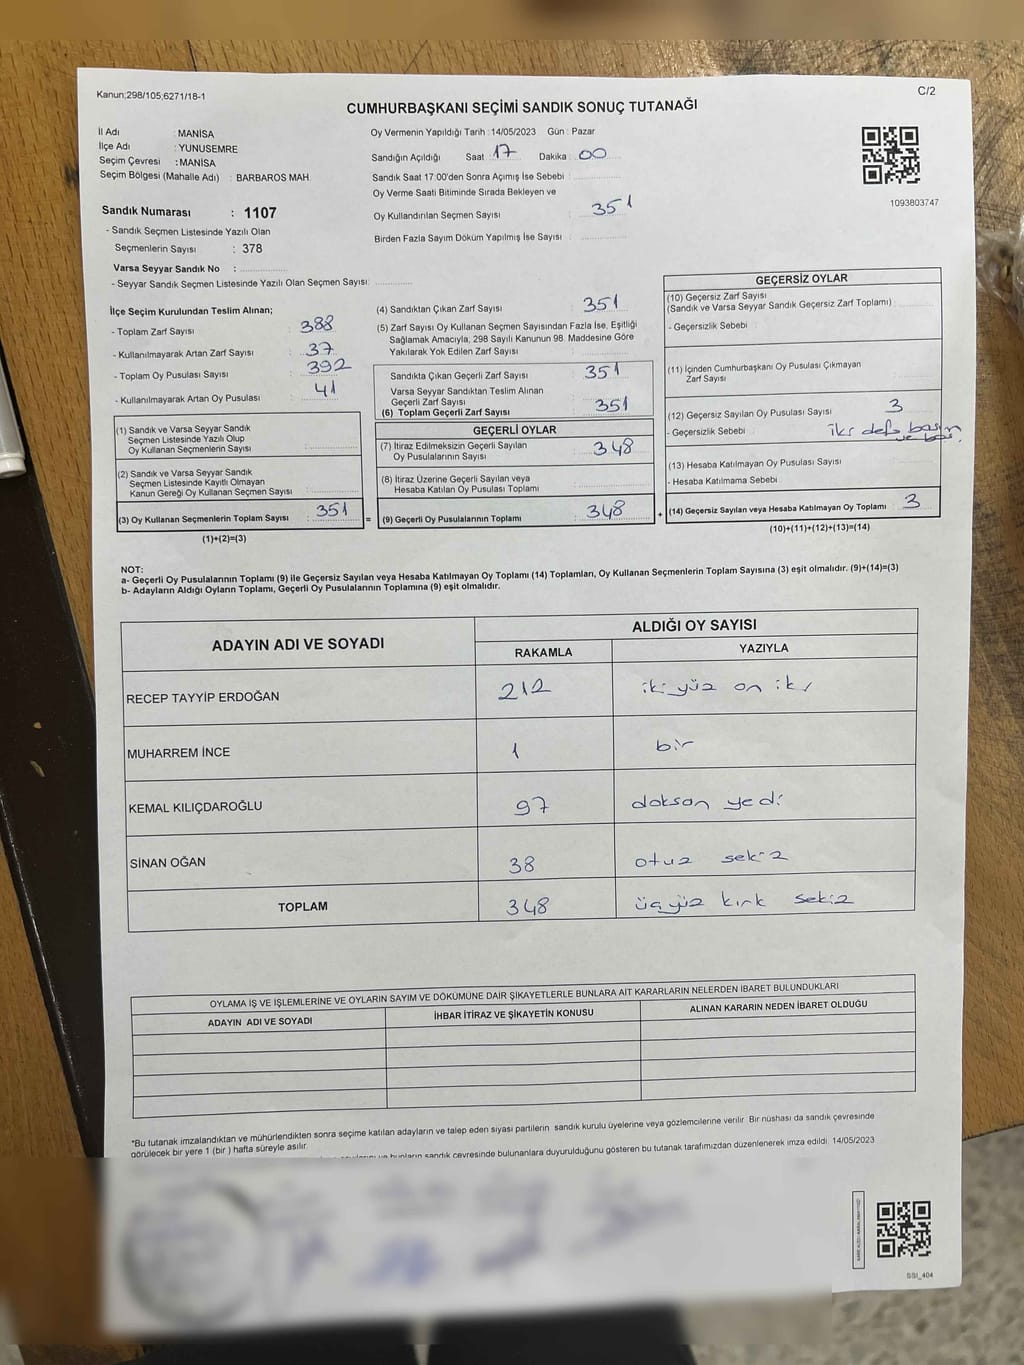 Kanun;298/105,6271/18-1
C/2
CUMHURBAŞKANI SEÇİMİ SANDIK SONUÇ TUTANAĞI
İl Adı : MANİSA
İlçe Adı : YUNUSEMRE
Seçim Çevresi : MANİSA
Seçim Bölgesi (Mahalle Adı) : BARBAROS MAH.
Oy Vermenin Yapıldığı Tarih : 14/05/2023 Gün : Pazar
Sandığın Açıldığı Saat 17 Dakika : 00
Sandık Saat 17:00'den Sonra Açımış İse Sebebi :
Oy Verme Saati Bitiminde Sırada Bekleyen ve
Oy Kullandırılan Seçmen Sayısı : 351
Birden Fazla Sayım Döküm Yapılmış İse Sayısı :
1093803747
Sandık Numarası : 1107
- Sandık Seçmen Listesinde Yazılı Olan
Seçmenlerin Sayısı : 378
Varsa Seyyar Sandık No :
- Seyyar Sandık Seçmen Listesinde Yazılı Olan Seçmen Sayısı:
İlçe Seçim Kurulundan Teslim Alınan;
- Toplam Zarf Sayısı : 388
- Kullanılmayarak Artan Zarf Sayısı : 37
- Toplam Oy Pusulası Sayısı : 392
- Kullanılmayarak Artan Oy Pusulası : 41
(1) Sandık ve Varsa Seyyar Sandık
Seçmen Listesinde Yazılı Olup
Oy Kullanan Seçmenlerin Sayısı :
(2) Sandık ve Varsa Seyyar Sandık
Seçmen Listesinde Kayıtlı Olmayan
Kanun Gereği Oy Kullanan Seçmen Sayısı :
(3) Oy Kullanan Seçmenlerin Toplam Sayısı : 351
(1)+(2)=(3)
(4) Sandıktan Çıkan Zarf Sayısı : 351
(5) Zarf Sayısı Oy Kullanan Seçmen Sayısından Fazla İse, Eşitliği
Sağlamak Amacıyla; 298 Sayılı Kanunun 98. Maddesine Göre
Yakılarak Yok Edilen Zarf Sayısı :
Sandıkta Çıkan Geçerli Zarf Sayısı : 351
Varsa Seyyar Sandıktan Teslim Alınan
Geçerli Zarf Sayısı :
(6) Toplam Geçerli Zarf Sayısı : 351
GEÇERLİ OYLAR
(7) İtiraz Edilmeksizin Geçerli Sayılan
Oy Pusulalarının Sayısı : 348
(8) İtiraz Üzerine Geçerli Sayılan veya
Hesaba Katılan Oy Pusulası Toplamı :
= (9) Geçerli Oy Pusulalarının Toplamı : 348
GEÇERSİZ OYLAR
(10) Geçersiz Zarf Sayısı
(Sandık ve Varsa Seyyar Sandık Geçersiz Zarf Toplamı) :
- Geçersizlik Sebebi :
(11) İçinden Cumhurbaşkanı Oy Pusulası Çıkmayan
Zarf Sayısı :
(12) Geçersiz Sayılan Oy Pusulası Sayısı : 3
- Geçersizlik Sebebi : iki defa
(13) Hesaba Katılmayan Oy Pusulası Sayısı :
- Hesaba Katılmama Sebebi :
+ (14) Geçersiz Sayılan veya Hesaba Katılmayan Oy Toplamı : 3
(10)+(11)+(12)+(13)=(14)
NOT:
a- Geçerli Oy Pusulalarının Toplamı (9) ile Geçersiz Sayılan veya Hesaba Katılmayan Oy Toplamı (14) Toplamları, Oy Kullanan Seçmenlerin Toplam Sayısına (3) eşit olmalıdır. (9)+(14)=(3)
b- Adayların Aldığı Oyların Toplamı, Geçerli Oy Pusulalarının Toplamına (9) eşit olmalıdır.
ADAYIN ADI VE SOYADI
ALDIĞI OY SAYISI
RAKAMLA YAZIYLA
RECEP TAYYİP ERDOĞAN 212 iki yüz on iki
MUHARREM İNCE 1 bir
KEMAL KILIÇDAROĞLU 97 doksan yedi
SİNAN OĞAN 38 otuz sekiz
TOPLAM 348 üçyüz kırk sekiz
OYLAMA İŞ VE İŞLEMLERİNE VE OYLARIN SAYIM VE DÖKÜMÜNE DAİR ŞİKAYETLERLE BUNLARA AİT KARARLARIN NELERDEN İBARET BULUNDUKLARI
ADAYIN ADI VE SOYADI İHBAR İTİRAZ VE ŞİKAYETİN KONUSU ALINAN KARARIN NEDEN İBARET OLDUĞU
*Bu tutanak imzalandıktan ve mühürlendikten sonra seçime katılan adayların ve talep eden siyasi partilerin sandık kurulu üyelerine veya gözlemcilerine verilir. Bir nüshası da sandık çevresinde
görülecek bir yere 1 (bir ) hafta süreyle asılır.
ve bunların sandık çevresinde bulunanlara duyurulduğunu gösteren bu tutanak tarafımızdan düzenlenerek imza edildi. 14/05/2023
SSI_404